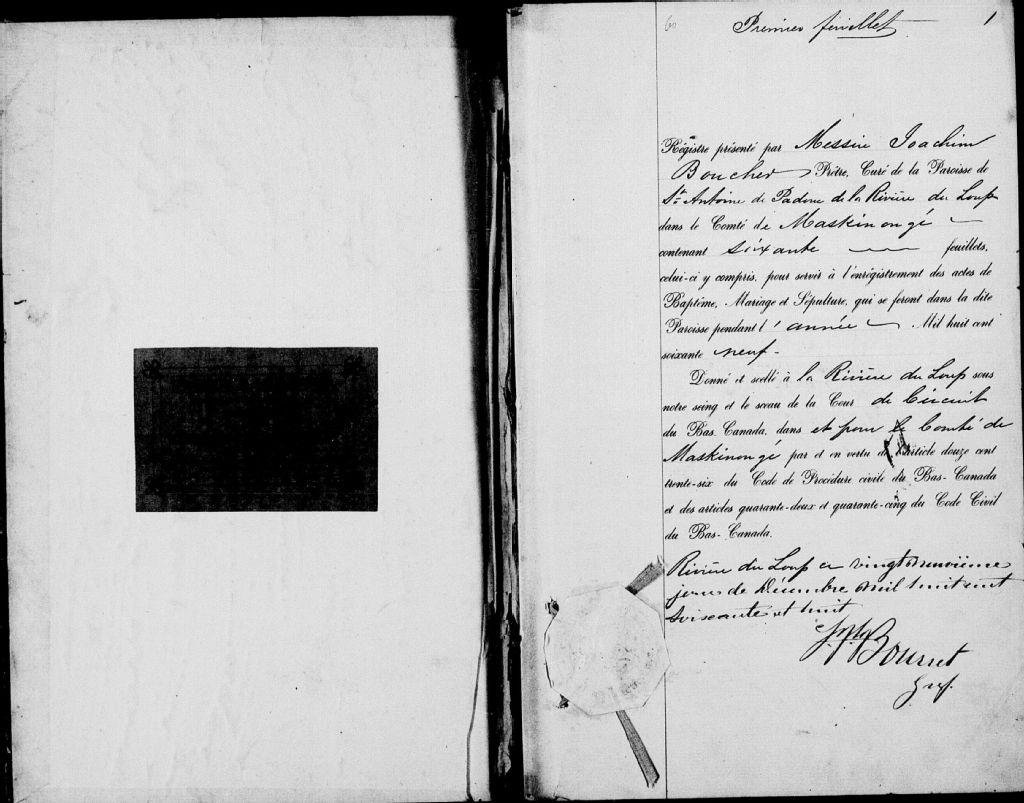 60
Premier feuillet
1
Régistre présenté par Messire Joachim
Boucher Prêtre, Curé de la Paroisse de
St. Antoine de Padoue de la Rivière du Loup
dans le Comté de Maskinongé
contenant soixante feuillets,
celui-ci y compris, pour servir à l'enrégistrement des actes de
Baptême, Mariage et Sépulture, qui se feront dans la dite
Paroisse pendant l'année Mil huit cent
soixante neuf.
Donné et scellé à la Rivière du Loup sous
notre seing et le sceau de la Cour de Circuit
du Bas-Canada, dans et pour le Comté de
Maskinongé par et en vertu de l'article douze cent
trente-six du Code de Procédure civile du Bas-Canada
et des articles quarante-deux et quarante-cinq du Code Civil
du Bas-Canada.
Rivière du Loup ce vingt neuvième
jour de Décembre mil huit cent
soixante et huit
Bourret
Gref.